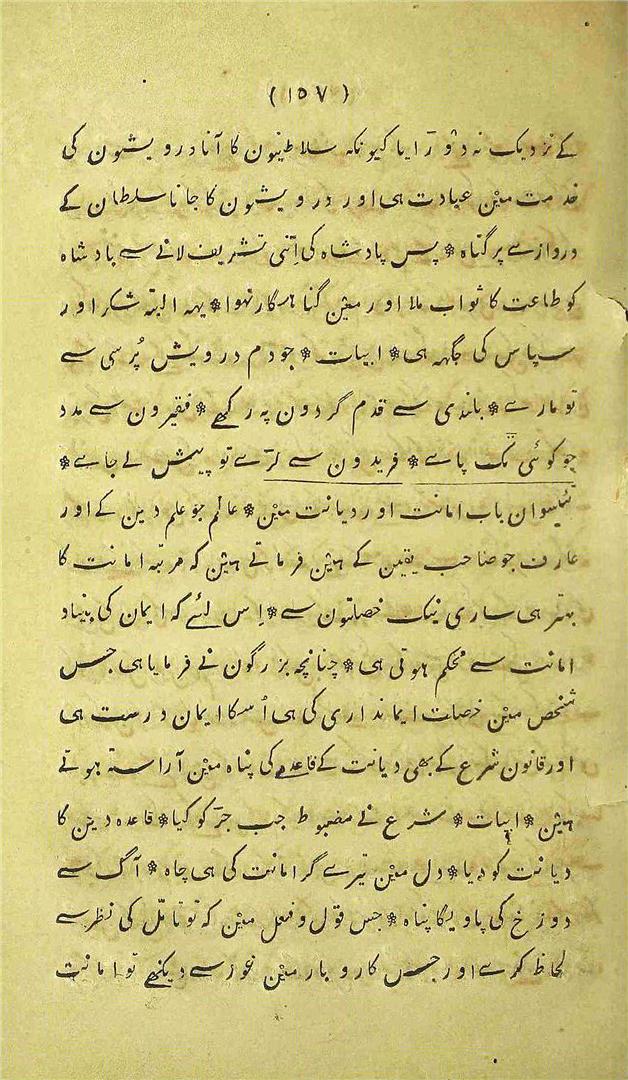 ( ۱۵۷ )
کے نزدیک نہ دوڑایا کیونکہ سلاطینون کا آنا درویشون کی
خدمت مین عبادت ہی اور درویشون کا جانا سلطان کے
دروازے پر گناہ * پس پادشاہ کی اِتنی تشریف لانے سے پادشاہ
کو طاعت کا ثواب ملا اور مین گناہ گار نہوا * یہہ البتہ شکر اور
سپاس کی جگہہ ہی * ابیات * جو دم درویش پُرسی سے
تو مارے * بلندی سے قدم گردون پہ رکھے * فقیرون سے مدد
جو کوئی تک پاسے * فریدون سے لڑے تو پیش لے جاے *
تئیسوان باب امانت اور دیانت مین * عالم جو علم دین کے اور
عارف جو صاحب یقین کے ہین فرماتے ہین کہ مرتبہ امانت کا
بہتر ہی ساری نیک خصلتون سے * اِس لئے کہ ایمان کی بنیاد
امانت سے محکم ہوتی ہی * چنانچہ بزرگون نے فرمایا ہی جس
شخص مین خصلت ایمانداری کی ہی اُسکا ایمان درست ہی
اور قانون شرع کے بھی دیانت کے قاعدے کی پناہ مین آراستہ ہوتے
ہین * ابیات * شرع نے مضبوط جب جڑ کو کیا * قاعدہ دین کا
دیانت کو دیا * دل مین تیرے گر امانت کی ہی چاہ * آگ سے
دوزخ کی پاویگا پناہ * جس قول و فعل مین کہ تو تامّل کی نظر سے
لحاظ کرے اور جس کاروبار مین غور سے دیکھے تو امانت